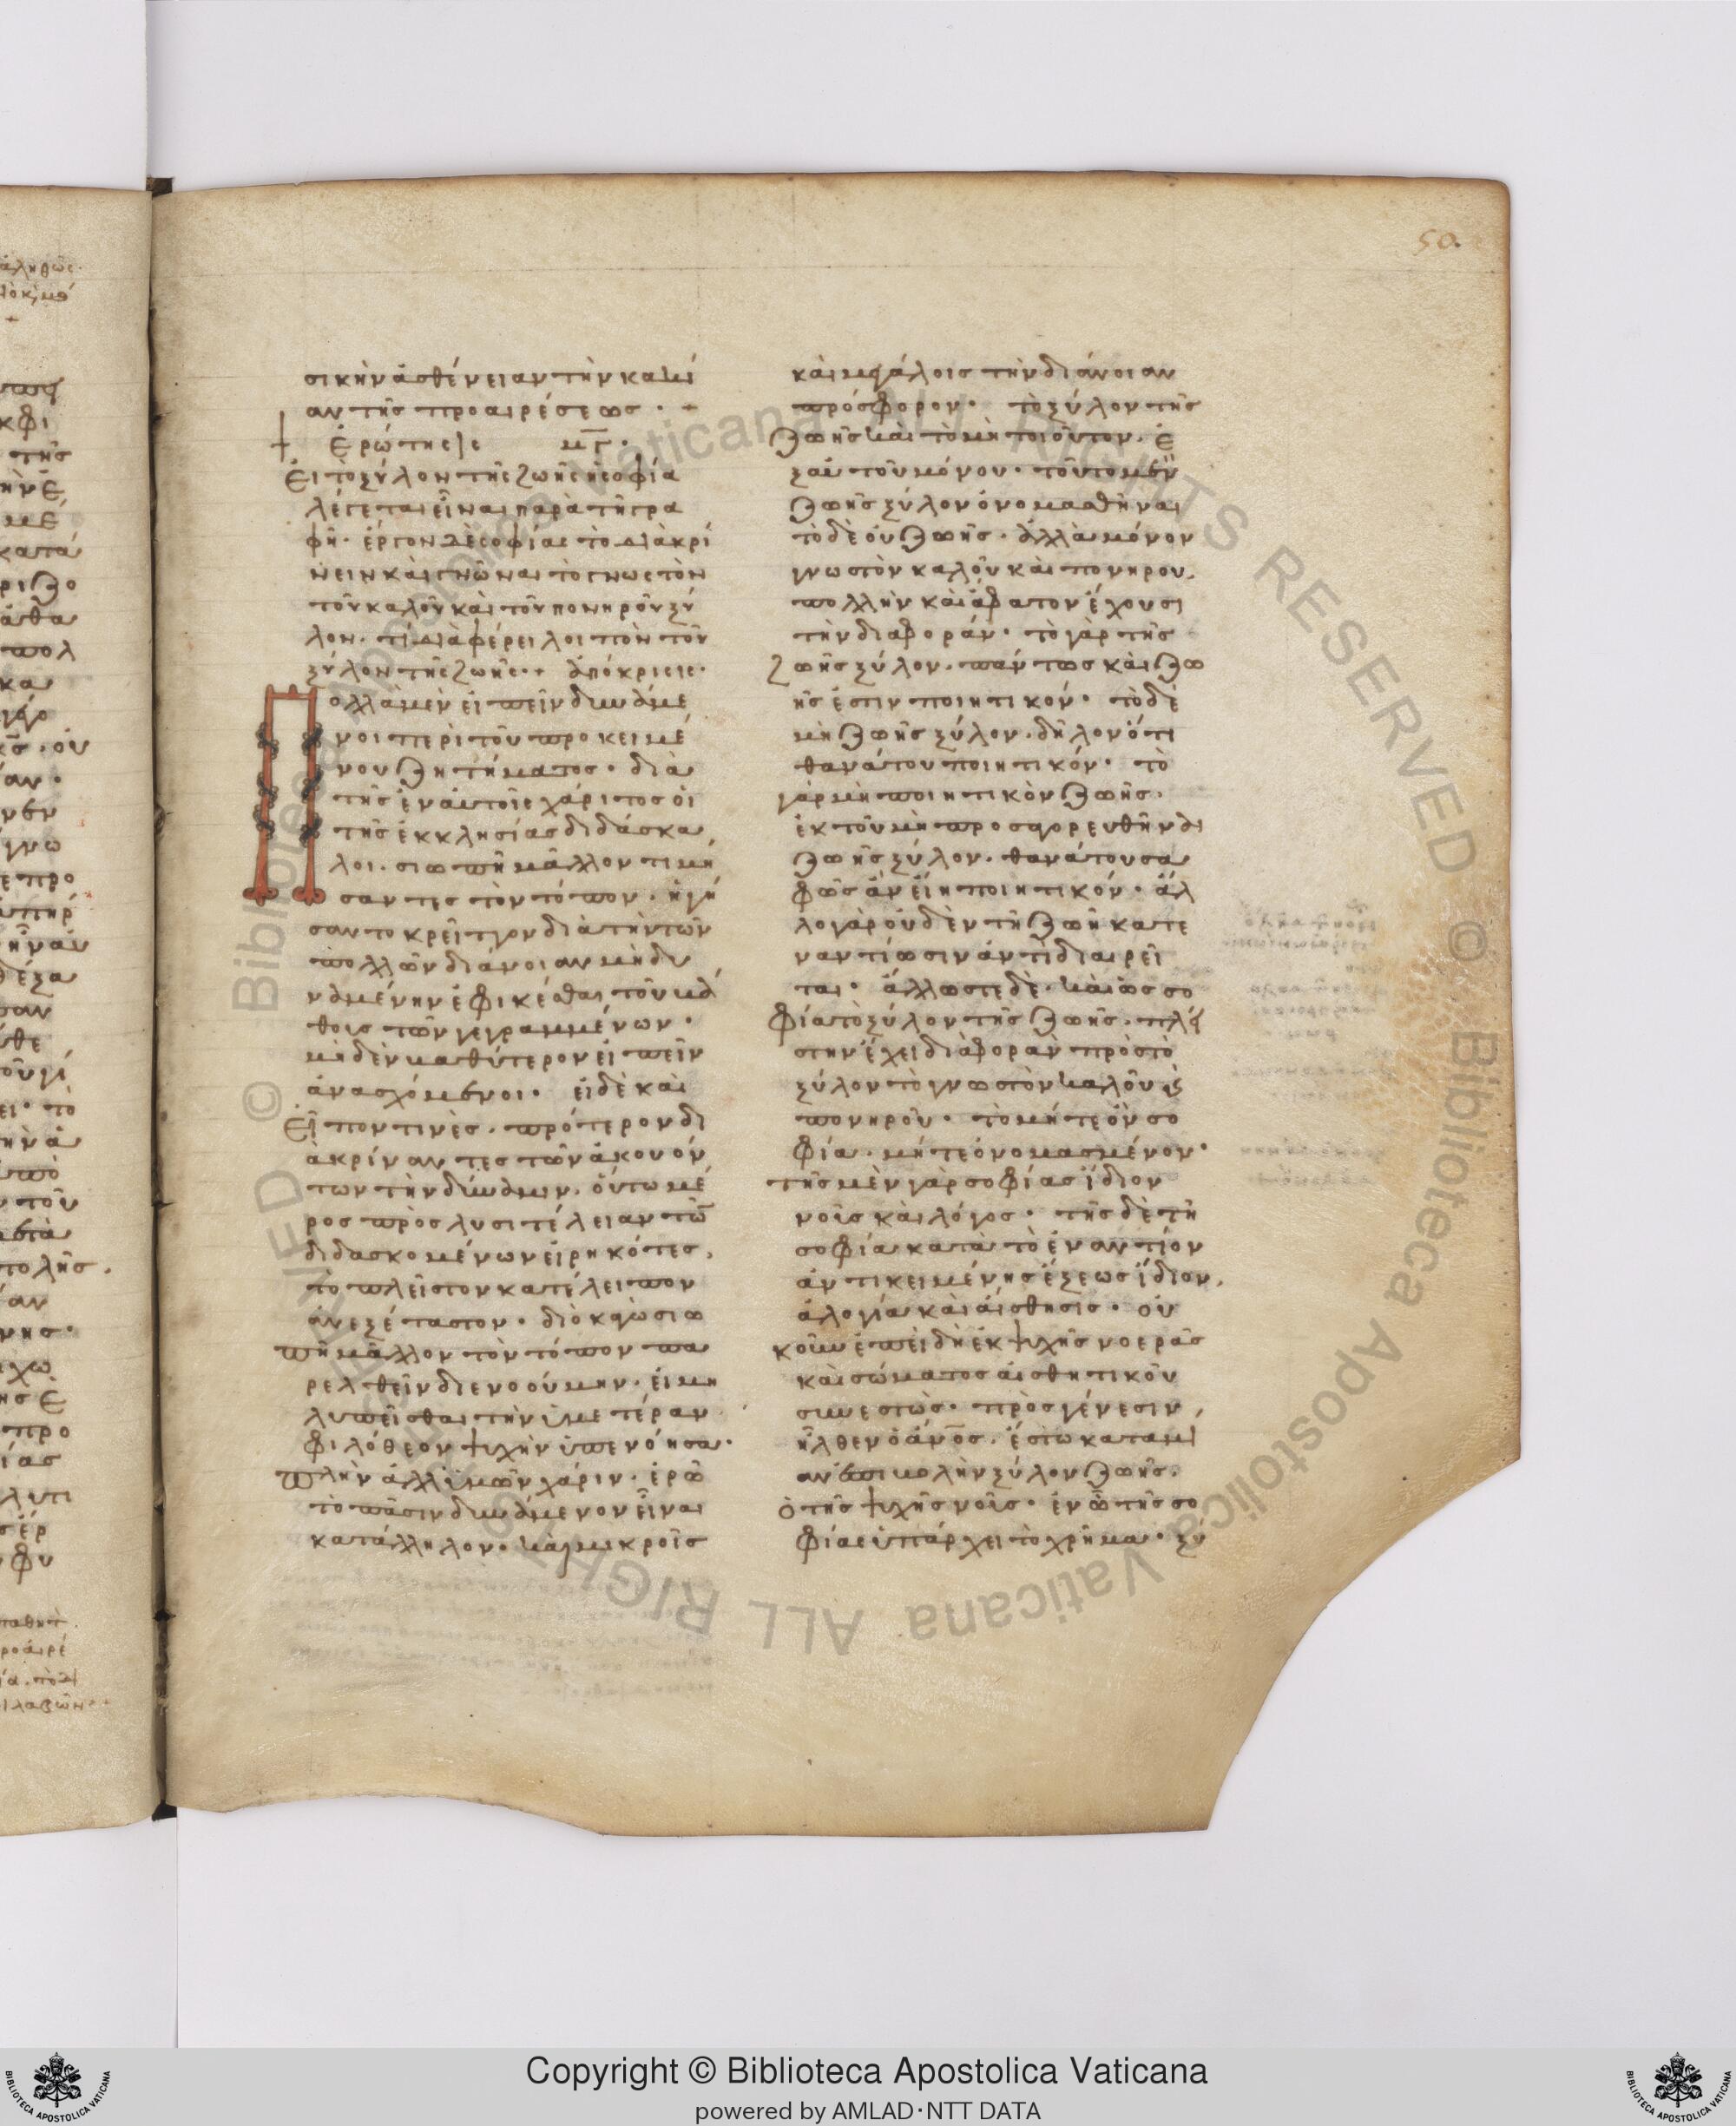 50.
σικὴν ἀσθένειαν τὴν κακί
αν τῆς προαιρέσεως · +
Ἐρώτησις μγ ·
Εἰ τὸ ξύλον τῆς ζωῆς ἡ σοφία
λέγεται εἶναι παρὰ τῆ γρα
φῆ · ἔργον δὲ σοφίας τὸ διακρί
νειν καὶ γνῶναι τὸ γνωστὸν
τοῦ καλοῦ καὶ τοῦ πονηροῦ ξύ
λον · τί διαφέρει λοιπὸν τοῦ
ξύλον τῆς ζωῆς · + ἀπόκρισις ·
Πολλὰ μὲν εἰπεῖν δυνάμε
νοι περὶ τοῦ προκειμέ
νου ζητήματος · διὰ
τῆς ἐν αὐτοῖς χάριτος οἱ
τῆς ἐκκλησίας διδάσκα
λοι · σιωπῆ μᾶλλον τιμή
σαντες τὸν τόπον · ἡγή
σαντο κρεῖττον διὰ τὴν τῶν
πολλῶν διάνοιαν μὴ δυ
ναμένην ἐφικέσθαι τοῦ βά
θους τῶν γεγραμμένων ·
μηδὲν βαθύτερον εἰπεῖν
ἀνασχόμενοι · εἰ δὲ καὶ
εἶπον τινὲς · πρότερον δι
ακρίναντες τῶν ἀκουόν
των τὴν δύναμιν · οὕτω μέ
ρος πρὸς λυσιτέλειαν τῶ̅
διδασκομένων εἰρηκότες ·
τὸ πλεῖστον κατέλειπον
ἀνεξέταστον · διὸ κἀγὼ σιω
πῆ μᾶλλον τὸν τόπον πα
ρελθεῖν διενοούμην · εἰ μὴ
λυπεῖσθαι τὴν ὑμετέραν
φιλόθεον ψυχὴν ὑπενόησα ·
πλὴν ἀλλ' ὑμῶν χάριν · ἐρῶ
τὸ πᾶσιν δυνάμενον εἶναι
κατάλληλον · καὶ μικροῖς
καὶ μεγάλοις τὴν διάνοιαν
πρόσφορον · τὸ ξύλον τῆς
ζωῆς καὶ τὸ μὴ τοιοῦτον · ἐ
ξ αὐτοῦ μόνου · τοῦ τὸ μὲν
ζωῆς ξύλον ὀνομασθῆναι
τὸ δὲ οὐ ζωῆς · ἀλλὰ μόνον
γνωστὸν καλοῦ καὶ πονηροῦ ·
πολλὴν καὶ ἄφατον ἔχουσι
τὴν διαφοράν · τὸ γὰρ τῆς
ζωῆς ξύλον · πάντως καὶ ζω
ῆς ἐστιν ποιητικόν · τὸ δὲ
μὴ ζωῆς ξύλον · δῆλον ὅτι
θανάτου ποιητικόν · τὸ
γὰρ μὴ ποιητικὸν ζωῆς ·
ἐκ τοῦ μὴ προσαγορευθῆναι
ζωῆς ξύλον · θανάτου σα
φῶς ἂν εἴη ποιητικόν · ἄλ
λο γὰρ οὐδὲν τῆ ζωῆ κατε
ναντίωσιν ἀντιδιαιρεῖ
ται · ἄλλωστε δὲ · καὶ ὡς σο
φία τὸ ξύλον τῆς ζωῆς · πλεί
στην ἔχει διαφορὰν πρὸς τὸ
ξύλον τὸ γνωστὸν καλοῦ κ̀
πονηροῦ · τὸ μήτε ὂν σο
φία · μήτε ὀνομασμένον ·
τῆς μὲν γὰρ σοφίας ἴδιον
νοῦς καὶ λόγος · τῆς δὲ τῆ
σοφία κατὰ τὸ ἐναντίον
ἀντικειμένης ἕξεως ἴδιον ·
ἀλογία καὶ αἴσθησις · οὐ
κοῦν ἐπειδὴ ἐκ ψυχῆς νοερᾶς
καὶ σώματος αἰσθητικοῦ
συνεστὼς · πρὸς γένεσιν
ἦλθεν ὁ ἄν̅ο̅ς · ἔστω κατὰ μί
αν ἐπιβολὴν ξύλον ζωῆς ·
ὁ τῆς ψυχῆς νοῦς · ἐν ὧ τῆς σο
φίας ὑπάρχει τὸ χρῆμα · ξύ
Copyright © Biblioteca Apostolica Vaticana
powered by AMLAD·NTT DATA